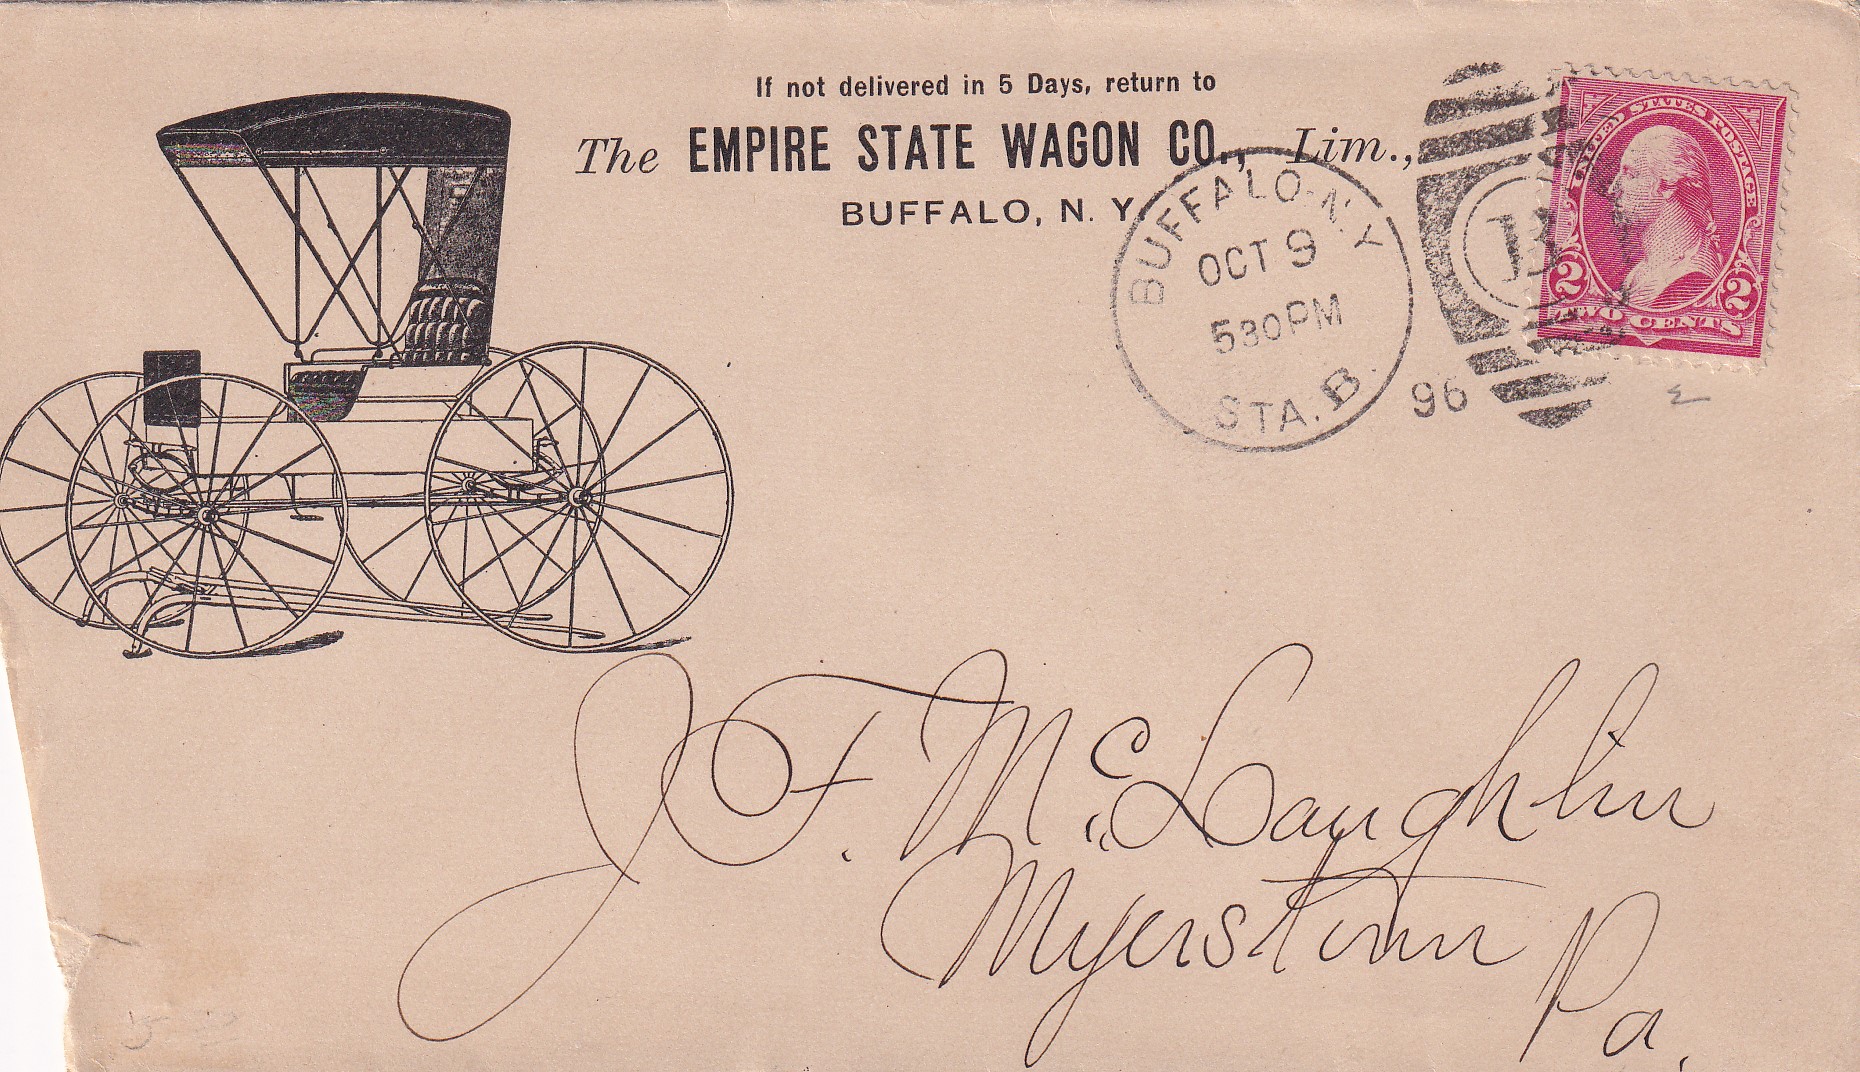 If not delivered in 5 Days, return to
The EMPIRE STATE WAGON CO., Lim.,
BUFFALO, N. Y.
BUFFALO. N.Y.
OCT 9
530PM
STA. B.
96
B
UNITED STATES POSTAGE
2 2
TWO CENTS
J. F. McLaughlin
Myerstown
Pa.